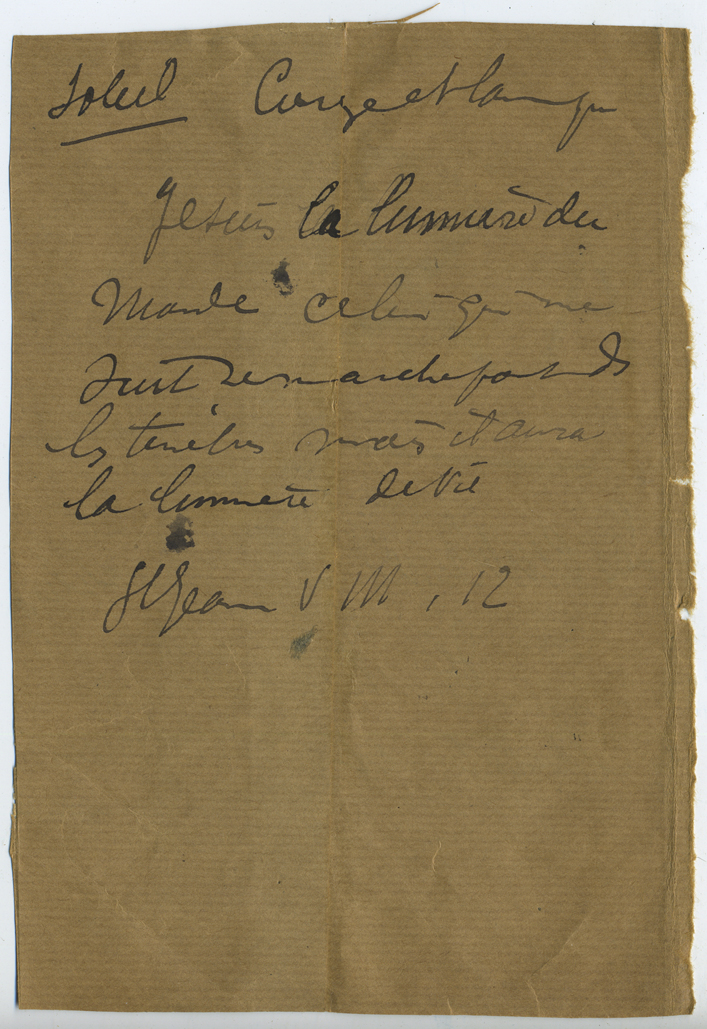 Soleil Cierge et lampe
Jesus la lumière du
Monde celui qui me
suit ne marche pas ds
les tenèbres mais il aura
la lumière de vie
St Jean VIII, 12